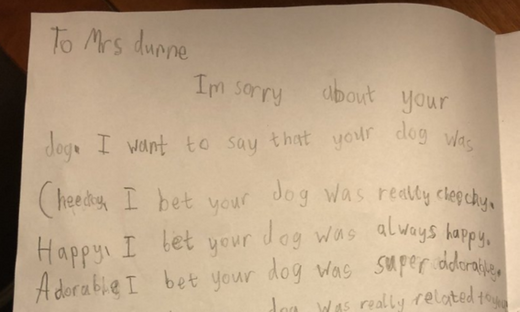 To Mrs dunne
Im sorry about your
dog. I want to say that your dog was
Cheecky, I bet your dog was really cheechy.
Happy, I bet your dog was always happy.
Adorable I bet your dog was super adorable.
dog was really related to